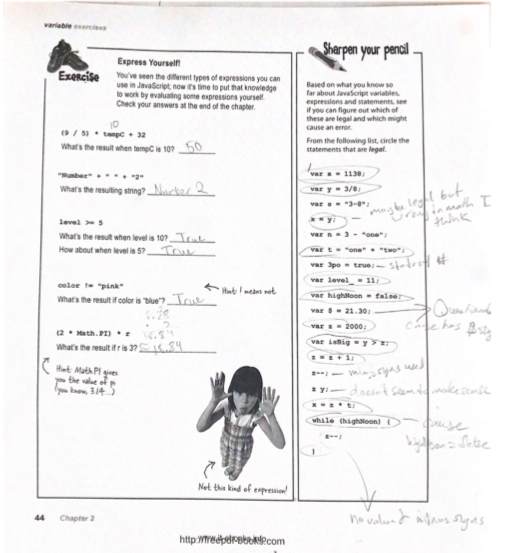 variable exercises
Exercise
Express Yourself!
You've seen the different types of expressions you can
use in JavaScript; now it's time to put that knowledge
to work by evaluating some expressions yourself.
Check your answers at the end of the chapter.
10
(9 / 5) * tempC + 32
What's the result when tempC is 10? 50
"Number" + " " + "2"
What's the resulting string? Number 2
level >= 5
What's the result when level is 10? True
How about when level is 5? True
color != "pink"
Hint: ! means not
What's the result if color is "blue"? True
(2 * Math.PI) * r
What's the result if r is 3? 18.84
Hint: Math.PI gives
you the value of pi
(you know, 3.14...)
Not this kind of expression!
Sharpen your pencil
Based on what you know so
far about JavaScript variables,
expressions and statements, see
if you can figure out which of
these are legal and which might
cause an error.
From the following list, circle the
statements that are legal.
var x = 1138;
var y = 3/8;
var s = "3-8";
x = y; maybe legal but
wrong in math I
think
var n = 3 - "one";
var t = "one" + "two";
var 3po = true; #
var level_ = 11;
var highNoon = false;
var $ = 21.30;
cause has $
var z = 2000;
var isBig = y > z;
z = z + 1;
z--; minus signs used
z y; doesn't seem to make sense
x = z * t;
while (highNoon) { cause
z--;
}
no value & minus signs
44 Chapter 2